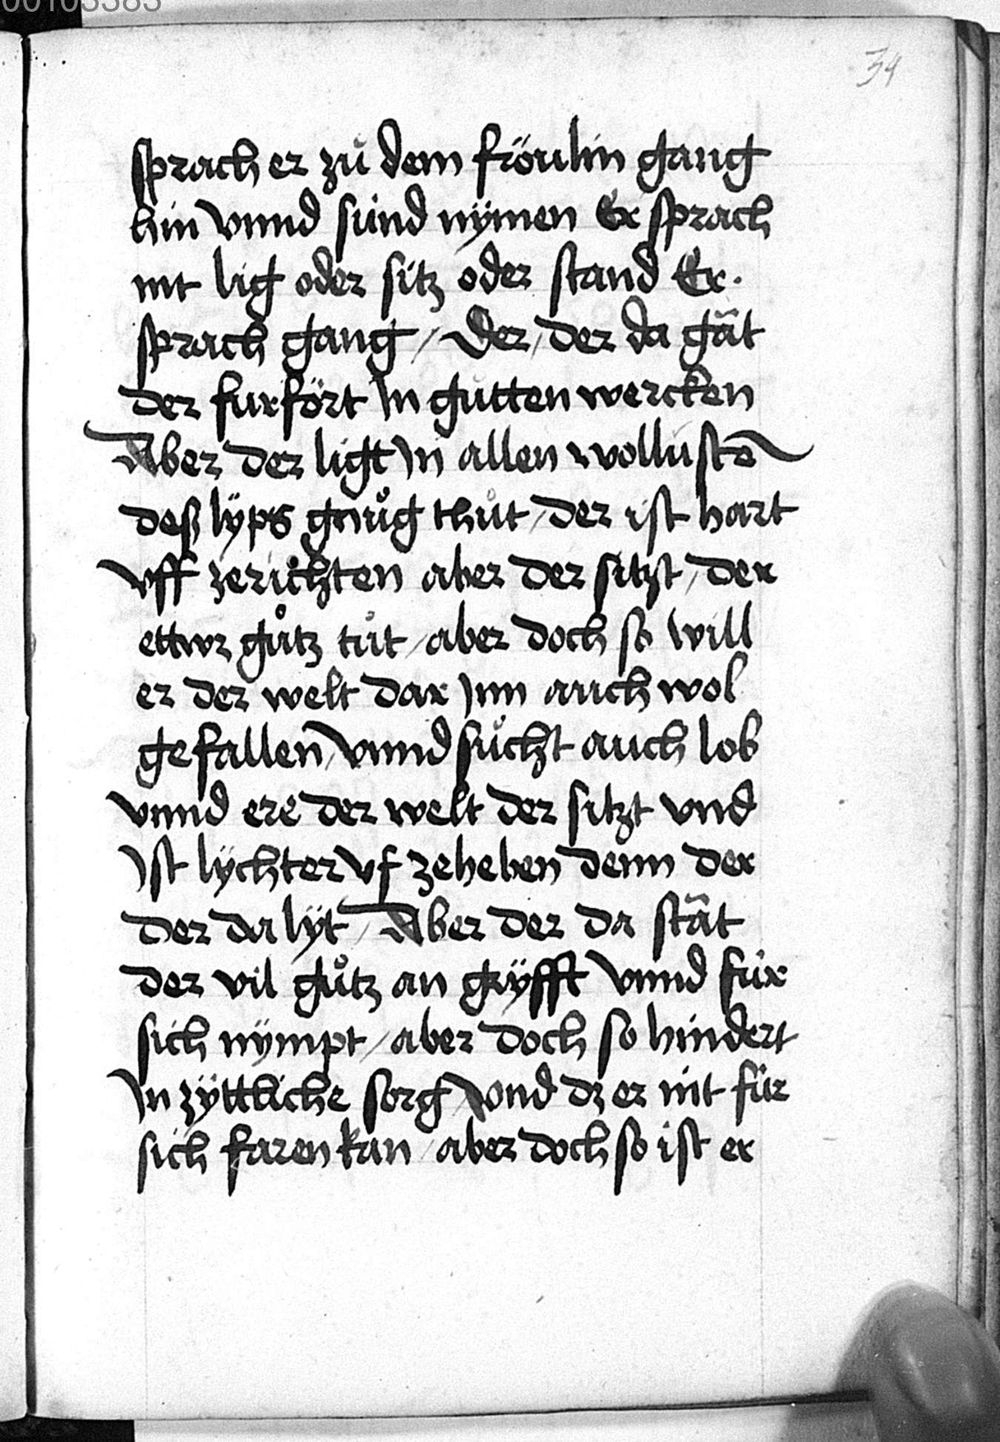 00103383
34
sprach er zů dem fröulin gang
hin vnnd sünd nÿmen Er sprach
nit lig oder sitz oder stand Er.
sprach gang / Der / der da gât
der furfört In gůtten wercken
Aber der ligt In allen wollustē
deß lÿps gnůg thůt / der ist hart
vff zerichten aber der sitzt / der
ettwz gůtz tůt / aber doch so will
er der welt dar Inn auch wol
gefallen / vnnd sůcht auch lob
vnnd ere der welt der sitzt vnd
Ist lÿchter vf zeheben denn der
der da lÿt / Aber der da stât
der vil gůtz an grÿfft vnnd für
sich nÿmpt / aber doch so hindert
In zÿttliche sorg / vnd dz er nit für
sich faren kan / aber doch so ist er